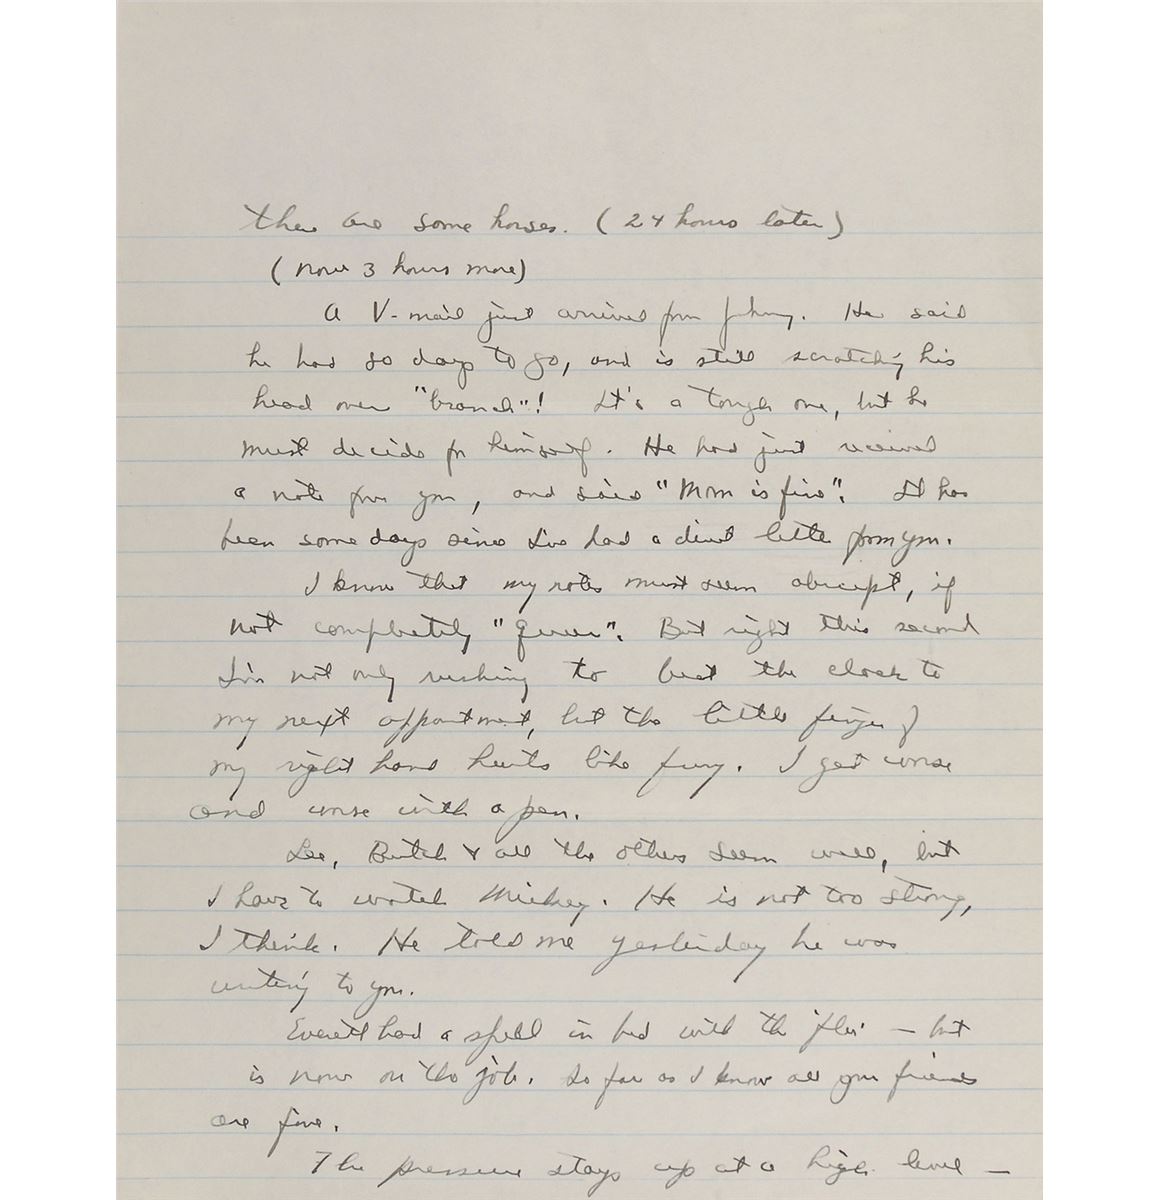 there are some horses. (24 hours later)
(now 3 hours more)
A V-mail just arrived from Johnny. He said
he had 80 days to go, and is still scratching his
head over "branch"! It's a tough one, but he
must decide for himself. He had just received
a note from you, and said "Mom is fine". It has
been some days since I've had a direct letter from you.
I know that my notes must seem abrupt, if
not completely "queer". But right this second
I'm not only rushing to beat the clock to
my next appointment, but the little finger of
my right hand hurts like fury. I get worse
and worse with a pen.
Lee, Butch & all the others seem well, but
I have to watch Mickey. He is not too strong,
I think. He told me yesterday he was
writing to you.
Everett had a spell in bed with the 'flu' — but
is now on the job. So far as I know all your friends
are fine.
The pressure stays up at a high level —